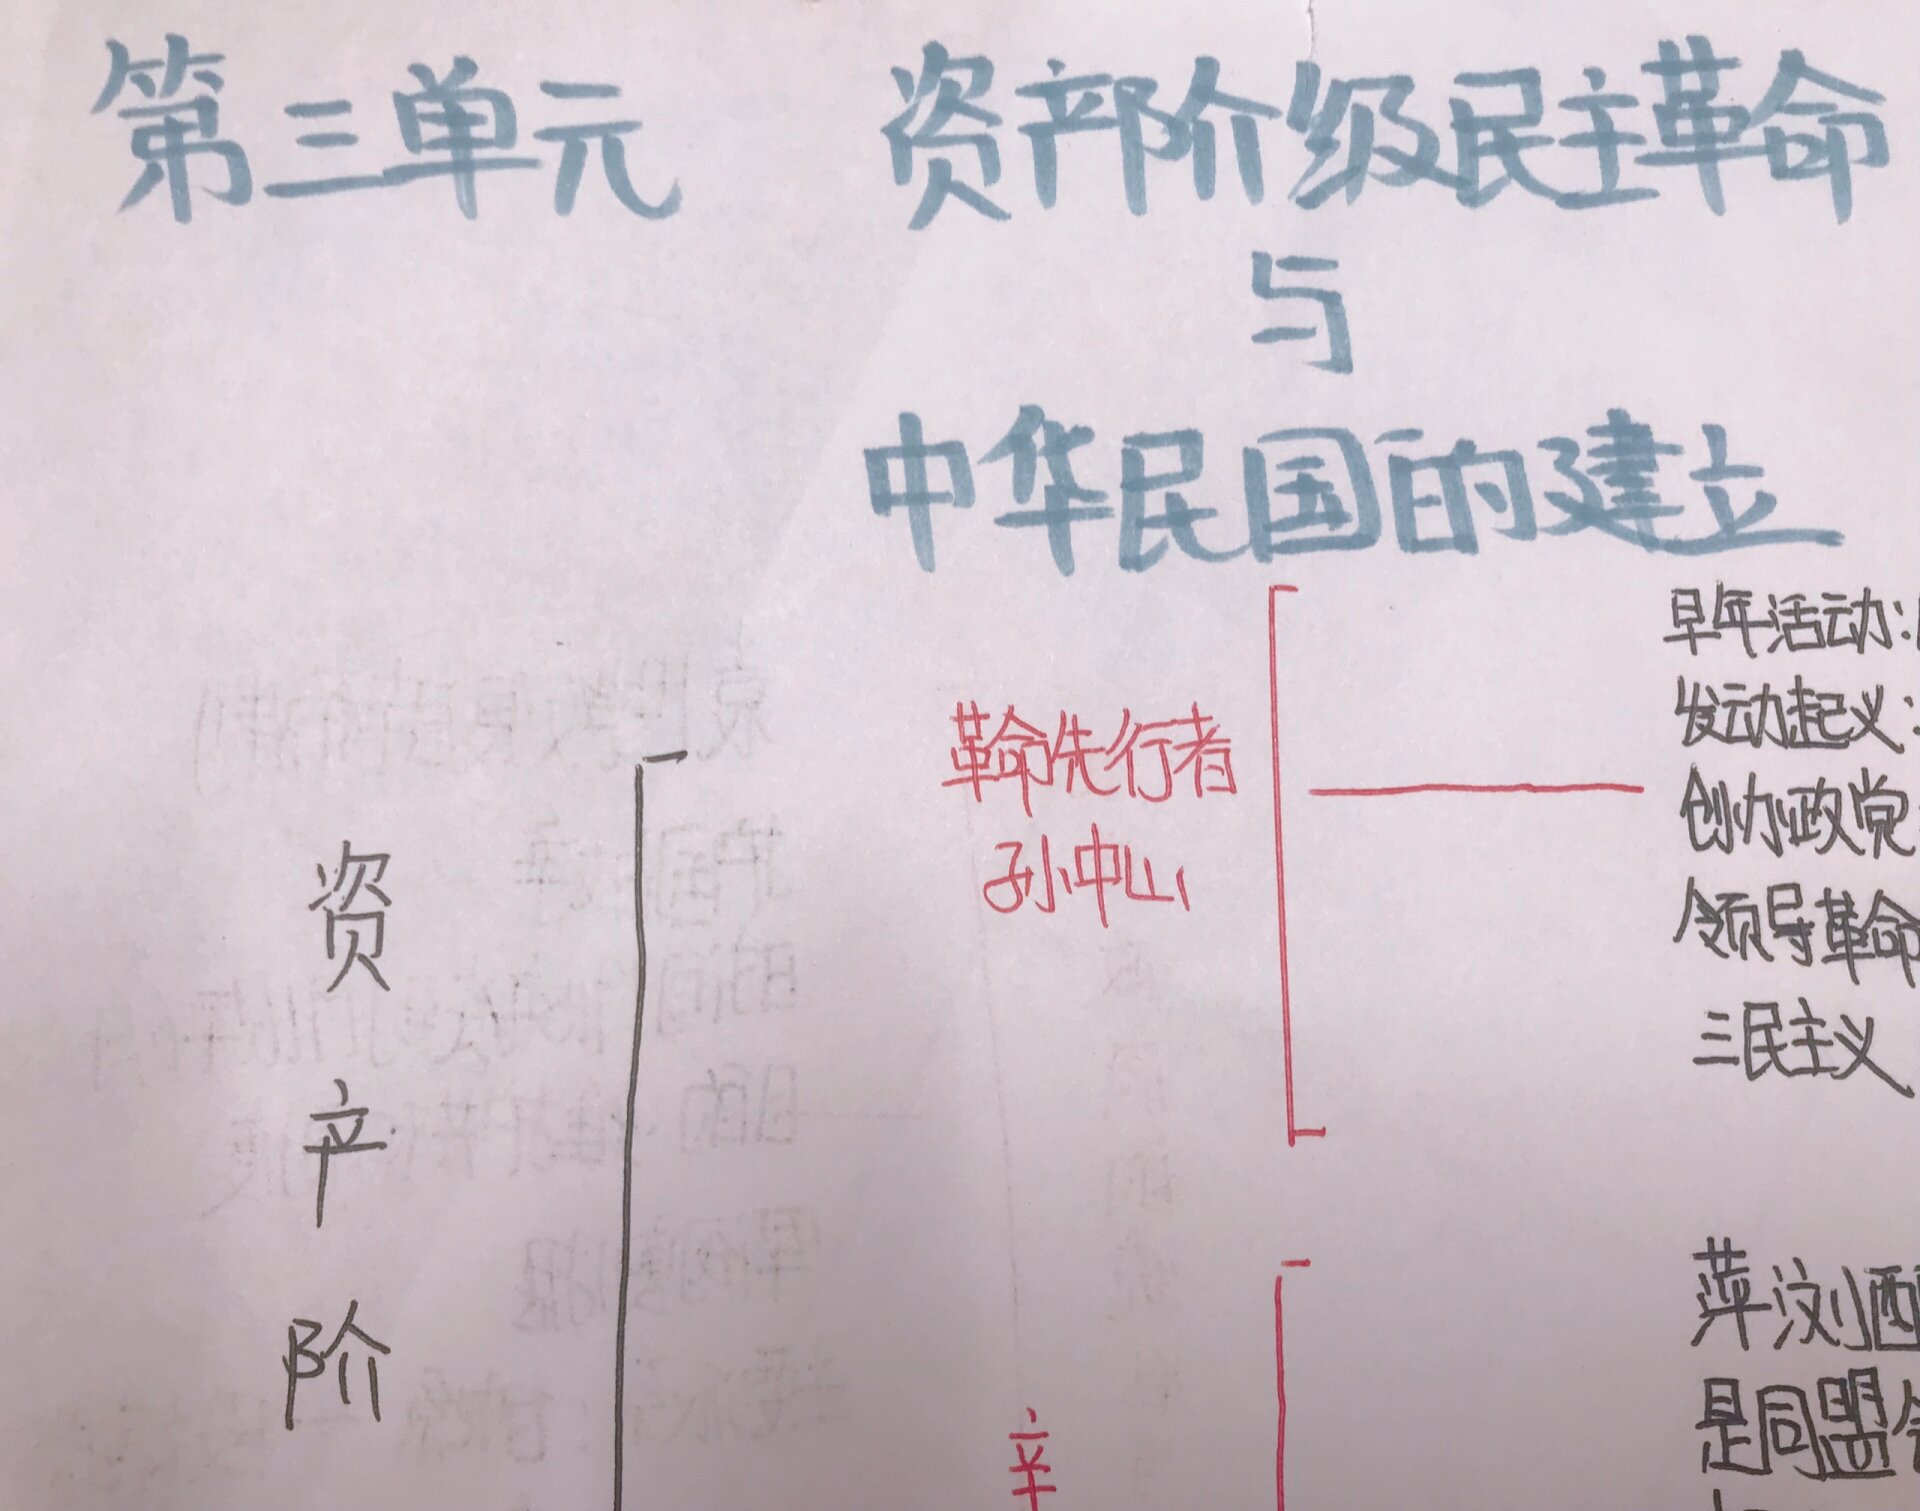 第三单元 资产阶级民主革命
与
中华民国的建立
资
产
阶
革命先行者
孙中山
早年活动:
发动起义:
创办政党
领导革命
三民主义
辛
萍浏
是同盟